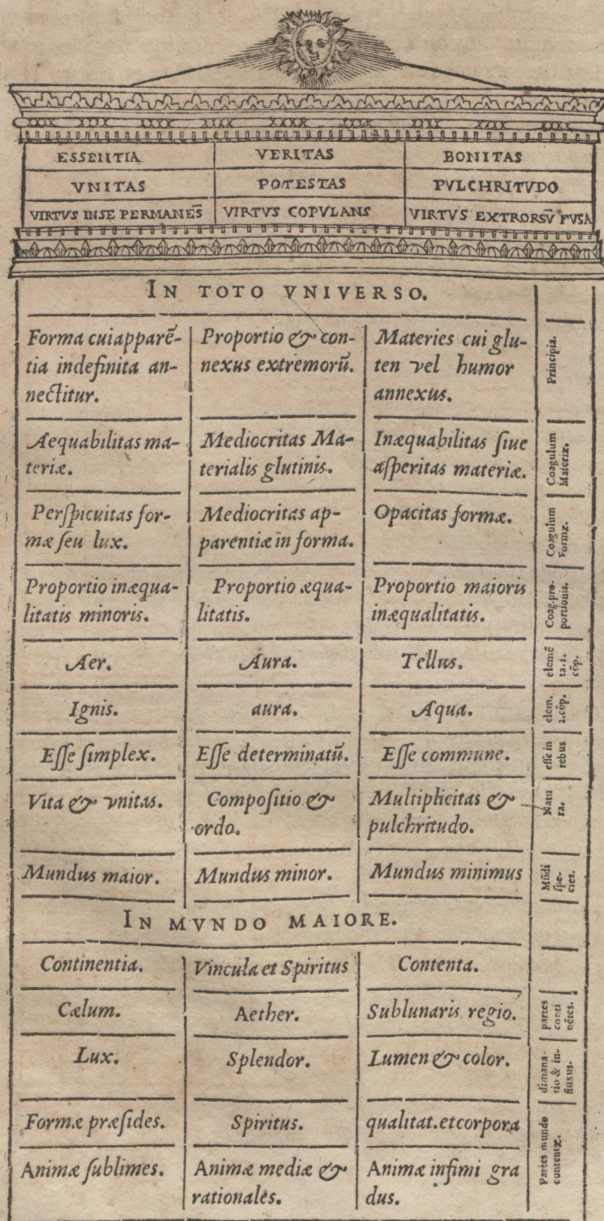 ESSENTIA VERITAS BONITAS
VNITAS POTESTAS PVLCHRITVDO
VIRTVS INSE PERMANES̄ VIRTVS COPVLANS VIRTVS EXTRORSV̄ FVSA
IN TOTO VNIVERSO.
Forma cuiapparē-
tia indefinita an-
nectitur.
Proportio & con-
nexus extremorū.
Materies cui glu-
ten vel humor
annexus.
Principia.
Aequabilitas ma-
teriæ.
Mediocritas Ma-
terialis glutinis.
Inæquabilitas ſiue
aſperitas materiæ.
Coagulum
Materiæ.
Perſpicuitas for-
mæ ſeu lux.
Mediocritas ap-
parentiæ in forma.
Opacitas formæ.
Coagulum
Formæ.
Proportio inæqua-
litatis minoris.
Proportio æqua-
litatis.
Proportio maioris
inæqualitatis.
Coag.pro-
portionis.
Aer.
Aura.
Tellus.
elemē
ta.1.
cōp.
Ignis.
aura.
Aqua.
elem.
2.cōp.
Eſſe ſimplex.
Eſſe determinatū.
Eſſe commune.
eſſe in
rebus
Vita & vnitas.
Compoſitio &
ordo.
Multiplicitas &
pulchritudo.
Natu
ra.
Mundus maior.
Mundus minor.
Mundus minimus
Mūdi
ſpe-
cies.
IN MVNDO MAIORE.
Continentia.
Vincula et Spiritus
Contenta.
Cælum.
Aether.
Sublunaris regio.
partes
conti
nētes.
Lux.
Splendor.
Lumen & color.
dimana
tio & in-
fluxus.
Formæ præſides.
Spiritus.
qualitat.et corpora
Animæ ſublimes.
Animæ mediæ &
rationales.
Animæ infimi gra
dus.
Partes mundo
contentæ.